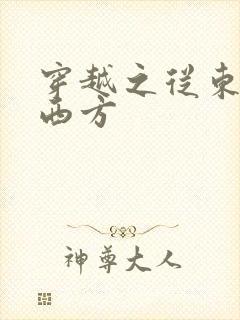 穿越之從東
西方
神尊大人